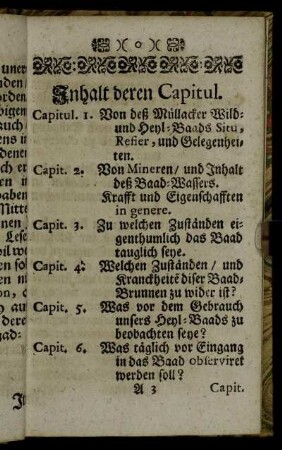 Inhalt deren Capitul.
Capitul. 1. Von deß Müllacker Wild-
und Heyl-Baads Situ,
Refier, und Gelegenhei-
ten.
Capit. 2. Von Mineren/ und Inhalt
deß Baad-Wassers.
Krafft und Eigenschafften
in genere.
Capit. 3. Zu welchen Zuständen ei-
genthumlich das Baad
tauglich seye.
Capit. 4. Welchen Zuständen/ und
Kranckheitē diser Baad-
Brunnen zu wider ist?
Capit. 5. Was vor dem Gebrauch
unsers Heyl-Baads zu
beobachten seye?
Capit. 6. Was täglich vor Eingang
in das Baad observiret
werden soll?
A 3 Capit.